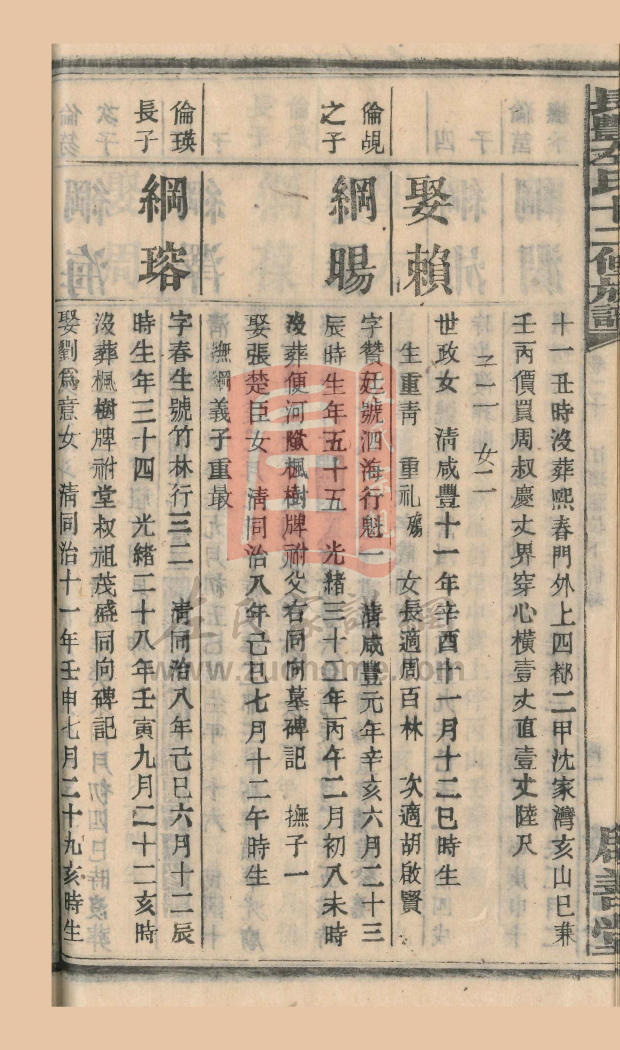 長豐左氏十二修族譜
十一丑時沒葬熙春門外上四都二甲沈家灣亥山巳兼
壬丙價買周叔慶丈界穿心橫壹丈直壹丈陸尺
子二 女二
娶賴
世政女 清咸豐十一年辛酉十一月十二巳時生
生重青 重礼殤 女長適周百林 次適胡啟賢
倫覘
之子
綱暘
字贊廷號泗海行魁一 清咸豐元年辛亥六月二十三
辰時生年五十五 光緒三十二年丙午二月初八未時
沒葬便河墩楓樹牌祔父右同向墓碑記 撫子一
娶張楚臣女 清同治八年己巳七月十二午時生
撫綱義子重最
倫瑛
長子
綱瑢
字春生號竹林行三二 清同治八年己巳六月十二辰
時生年三十四 光緒二十八年壬寅九月二十二亥時
沒葬楓樹牌祔堂叔祖茂盛同向碑記
娶劉為意女 清同治十一年壬申七月二十九亥時生
左氏家譜網
www.zuohome.com